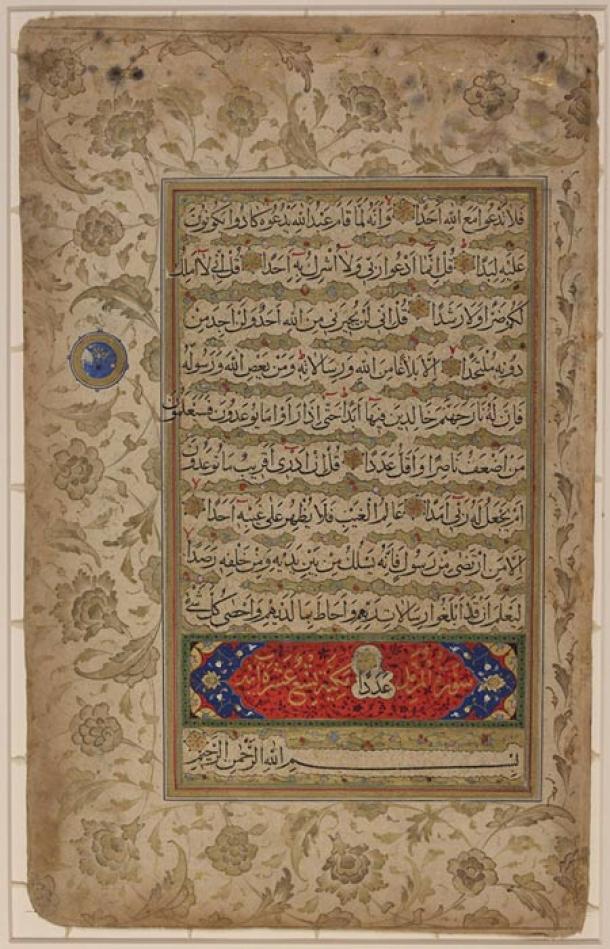 فَلَا تَدْعُوا مَعَ اللهِ أَحَدًا وَأَنَّهُ لَمَّا قَامَ عَبْدُ اللهِ يَدْعُوهُ كَادُوا يَكُونُونَ
عَلَيْهِ لِبَدًا قُلْ إِنَّمَا أَدْعُوا رَبِّي وَلَا أُشْرِكُ بِهِ أَحَدًا قُلْ إِنِّي لَا أَمْلِكُ
لَكُمْ ضَرًّا وَلَا رَشَدًا قُلْ إِنِّي لَنْ يُجِيرَنِي مِنَ اللهِ أَحَدٌ وَلَنْ أَجِدَ مِنْ
دُونِهِ مُلْتَحَدًا إِلَّا بَلَاغًا مِنَ اللهِ وَرِسَالَاتِهِ وَمَنْ يَعْصِ اللهَ وَرَسُولَهُ
فَإِنَّ لَهُ نَارَ جَهَنَّمَ خَالِدِينَ فِيهَا أَبَدًا حَتَّى إِذَا رَأَوْا مَا يُوعَدُونَ فَسَيَعْلَمُونَ
مَنْ أَضْعَفُ نَاصِرًا وَأَقَلُّ عَدَدًا قُلْ إِنْ أَدْرِي أَقَرِيبٌ مَا تُوعَدُونَ
أَمْ يَجْعَلُ لَهُ رَبِّي أَمَدًا عَالِمُ الْغَيْبِ فَلَا يُظْهِرُ عَلَى غَيْبِهِ أَحَدًا
إِلَّا مَنِ ارْتَضَى مِنْ رَسُولٍ فَإِنَّهُ يَسْلُكُ مِنْ بَيْنِ يَدَيْهِ وَمِنْ خَلْفِهِ رَصَدًا
لِيَعْلَمَ أَنْ قَدْ أَبْلَغُوا رِسَالَاتِ رَبِّهِمْ وَأَحَاطَ بِمَا لَدَيْهِمْ وَأَحْصَى كُلَّ شَيْءٍ
سورة المزمل عَدَدًا مكية تسع عشرة آية
بِسْمِ اللهِ الرَّحْمٰنِ الرَّحِيمِ